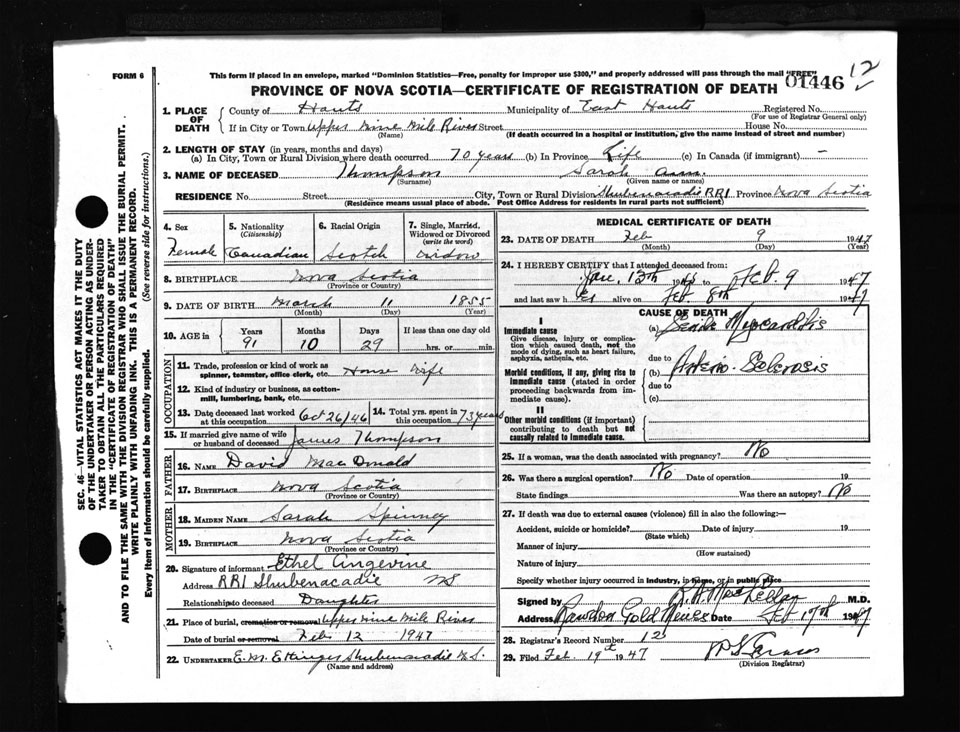 FORM 6
This form if placed in an envelope, marked "Dominion Statistics—Free, penalty for improper use $300," and properly addressed will pass through the mail "FREE"
01446
12
PROVINCE OF NOVA SCOTIA—CERTIFICATE OF REGISTRATION OF DEATH
1. PLACE OF DEATH County of Hants Municipality of East Hants Registered No.
(For use of Registrar General only)
If in City or Town Upper Nine Mile River Street House No.
(Name) (If death occurred in a hospital or institution, give the name instead of street and number)
2. LENGTH OF STAY (in years, months and days)
(a) In City, Town or Rural Division where death occurred 70 years (b) In Province Life (c) In Canada (if immigrant) —
3. NAME OF DECEASED Thompson Sarah Ann.
(Surname) (Given name or names)
RESIDENCE No. Street City, Town or Rural Division Shubenacadie RR1 Province Nova Scotia
(Residence means usual place of abode. Post Office Address for residents in rural parts not sufficient)
4. Sex Female
5. Nationality (Citizenship) Canadian
6. Racial Origin Scotch
7. Single, Married, Widowed or Divorced (write the word) Widow
8. BIRTHPLACE Nova Scotia
(Province or Country)
9. DATE OF BIRTH March 11 1855
(Month) (Day) (Year)
10. AGE in Years 91 Months 10 Days 29 If less than one day old hrs. or min.
OCCUPATION
11. Trade, profession or kind of work as spinner, teamster, office clerk, etc. House Wife
12. Kind of industry or business, as cotton-mill, lumbering, bank, etc.
13. Date deceased last worked at this occupation Oct 26/46
14. Total yrs. spent in this occupation 73 years
15. If married give name of wife or husband of deceased James Thompson
FATHER
16. NAME David MacDonald
17. BIRTHPLACE Nova Scotia
(Province or Country)
MOTHER
18. MAIDEN NAME Sarah Spinney
19. BIRTHPLACE Nova Scotia
(Province or Country)
20. Signature of informant Ethel Angevine
Address RR1 Shubenacadie NS
Relationship to deceased Daughter
21. Place of burial, cremation or removal Upper Nine Mile River
Date of burial or removal Feb 12 1947
22. UNDERTAKER E. M. Ettinger Shubenacadie N.S.
(Name and address)
MEDICAL CERTIFICATE OF DEATH
23. DATE OF DEATH Feb 9 1947
(Month) (Day) (Year)
24. I HEREBY CERTIFY that I attended deceased from:
Jan. 13th to Feb. 9 1947
and last saw her alive on Feb. 8th 1947
CAUSE OF DEATH
I
Immediate cause
Give disease, injury or complication which caused death, not the mode of dying, such as heart failure, asphyxia, asthenia, etc.
(a) Senile Myocarditis
due to
Morbid conditions, if any, giving rise to immediate cause (stated in order proceeding backwards from immediate cause).
(b) Arterio-Sclerosis
due to
(c)
II
Other morbid conditions (if important) contributing to death but not causally related to immediate cause.
25. If a woman, was the death associated with pregnancy? No
26. Was there a surgical operation? No Date of operation 19
State findings Was there an autopsy? No
27. If death was due to external causes (violence) fill in also the following:—
Accident, suicide or homicide? Date of injury 19
(State which)
Manner of injury
(How sustained)
Nature of injury
Specify whether injury occurred in industry, in home, or in public place
Signed by R. A. MacLellan M.D.
Address Rawdon Gold Mines Date Feb 17th 1947
28. Registrar's Record Number 12
29. Filed Feb. 19th 1947
(Division Registrar)
SEC. 46—VITAL STATISTICS ACT MAKES IT THE DUTY
OF THE UNDERTAKER OR PERSON ACTING AS UNDER-
TAKER TO OBTAIN ALL THE PARTICULARS REQUIRED
IN THE "CERTIFICATE OF REGISTRATION OF DEATH"
AND TO FILE THE SAME WITH THE DIVISION REGISTRAR WHO SHALL ISSUE THE BURIAL PERMIT.
WRITE PLAINLY WITH UNFADING INK. THIS IS A PERMANENT RECORD.
Every item of information should be carefully supplied. (See reverse side for instructions.)